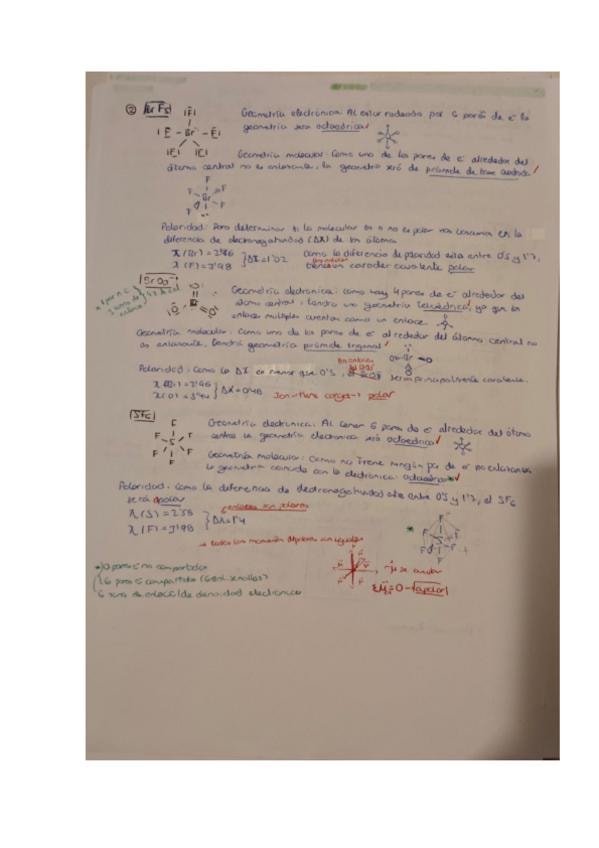 ② BrF5
Geometría electrónica: Al estar rodeado por 6 pares de e⁻ la
geometría será octaédrica
Geometría molecular: Como uno de los pares de e⁻ alrededor del
átomo central no es enlazante, la geometría será de pirámide de base cuadrada
Polaridad: Para determinar si la molécula es o no es polar nos basamos en la
diferencia de electronegatividad (ΔX) de los átomos
X (Br) = 2'96
X (F) = 3'98
ΔX = 1'02
como la diferencia de polaridad esta entre 0'5 y 1'7,
caracter covalente polar
BrO3⁻
Geometría electrónica: como hay 4 pares de e⁻ alrededor del
átomo central, tendrá una geometría tetraédrica, ya que los
enlaces múltiples cuentan como un enlace.
Geometría molecular: Como uno de los pares de e⁻ alrededor del átomo central no
es enlazante, tendrá geometría pirámide trigonal
Polaridad: Como la ΔX es menor que 0'5, será principalmente covalente.
ΔX = 0'48
polar
SF6
Geometría electrónica: Al tener 6 pares de e⁻ alrededor del átomo
central la geometría electrónica será octaédrica
Geometría molecular: Como no tiene ningún par de e⁻ no enlazantes
la geometría coincide con la electrónica: octaédrica
Polaridad: como la diferencia de electronegatividad esta entre 0'5 y 1'7, el SF6
será apolar
enlaces son polares
X (S) = 2'58
X (F) = 3'98
ΔX = 1'4
→ todos los momentos dipolares son iguales
se anulan
Σμ = 0 → apolar
0 pares e⁻ no compartidos
6 pares e⁻ compartidos (6 enl. sencillos)
6 densidad electrónica